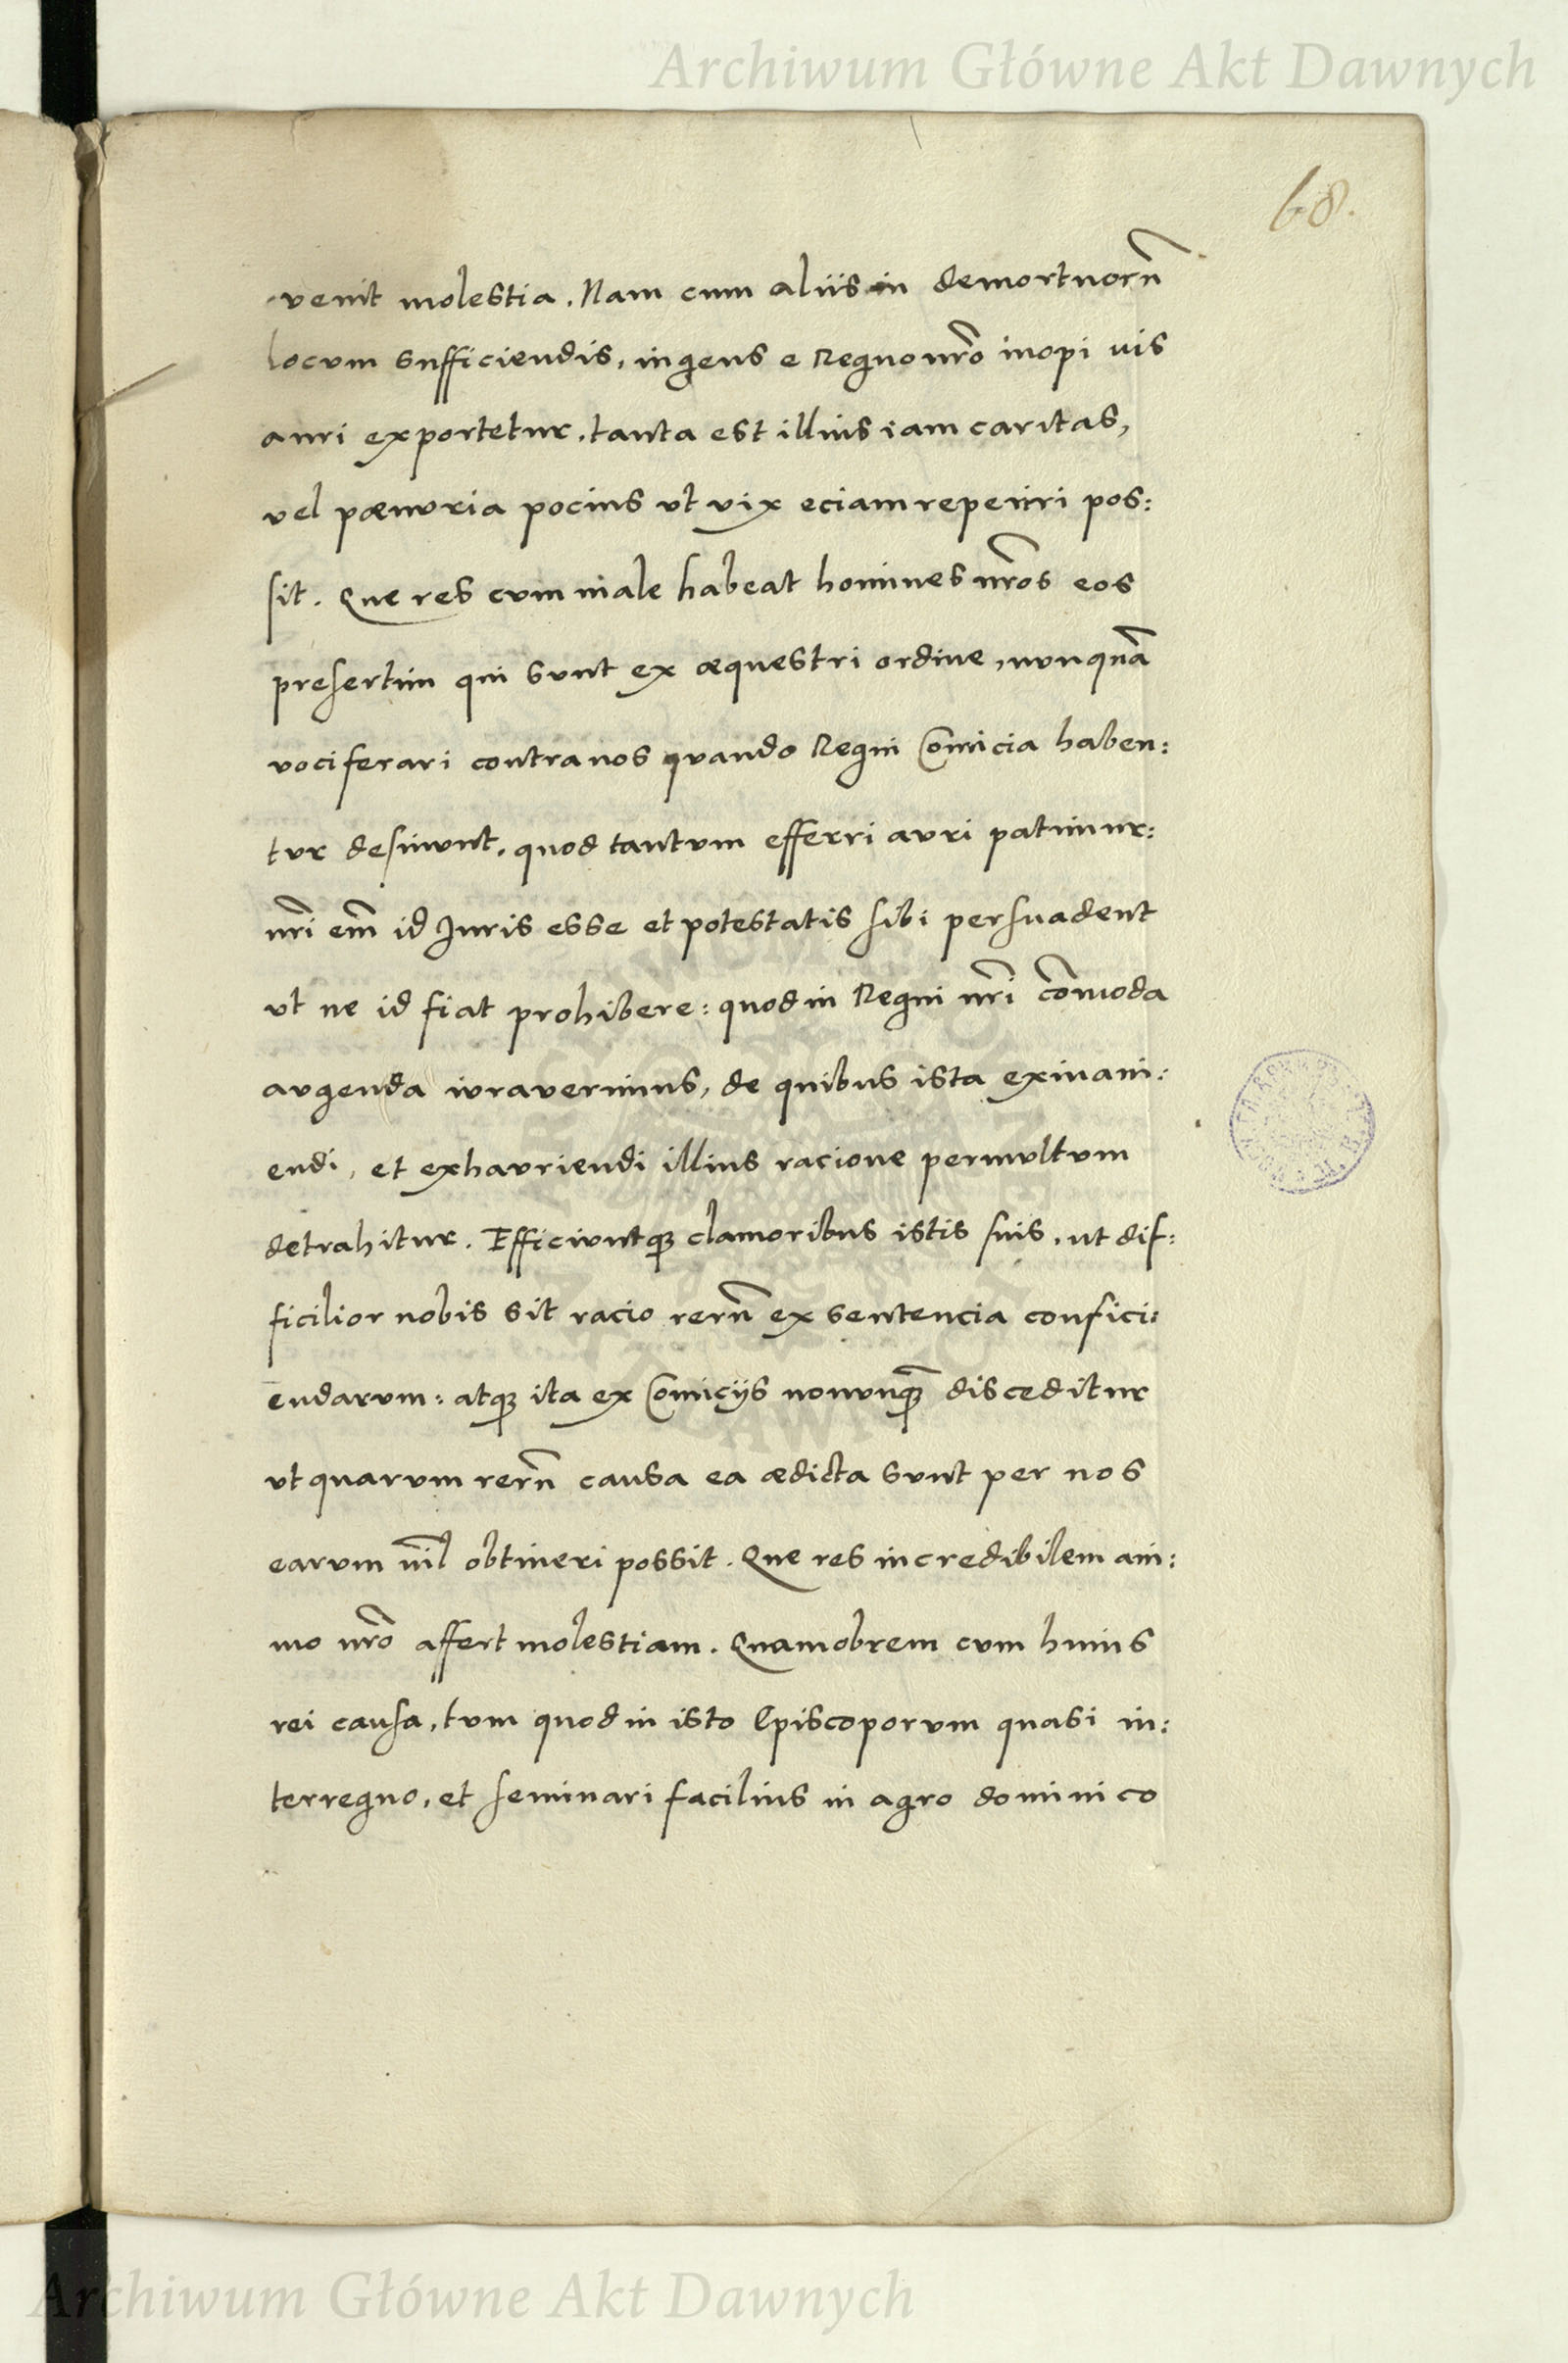 Archiwum Główne Akt Dawnych
68.
venit molestia. Nam cum aliis in demortuorũ
locum sufficiendis, ingens e Regno nr̃o inopi uis
auri exportetur, tanta est illius iam caritas,
vel pænuria pocius vt vix eciam reperiri pos:
sit. Que res cum male habeat homines nr̃os eos
presertim qui sunt ex æquestri ordine, nunquã
vociferari contra nos quando Regni Comicia haben:
tur desinunt, quod tantum efferri auri patimur:
nr̃i em̃ id Juris esse et potestatis sibi persuadent
vt ne id fiat prohibere: quod in Regni nr̃i com̃oda
augenda iuraverimus, de quibus ista exinani:
endi, et exhauriendi illius racione permultum
detrahitur. Efficiuntqꝫ clamoribus istis suis, ut dif:
ficilior nobis sit racio rerũ ex sentencia confici:
endarum: atqꝫ ita ex Comicijs nonunqꝫ̃ disceditur
vt quarum rerũ causa ea ædicta sunt per nos
earum nil̃ obtineri possit. Que res incredibilem ani:
mo nr̃o affert molestiam. Quamobrem cum huius
rei causa, tum quod in isto Episcoporum quasi in:
terregno, et seminari facilius in agro dominico
Archiwum Główne Akt Dawnych